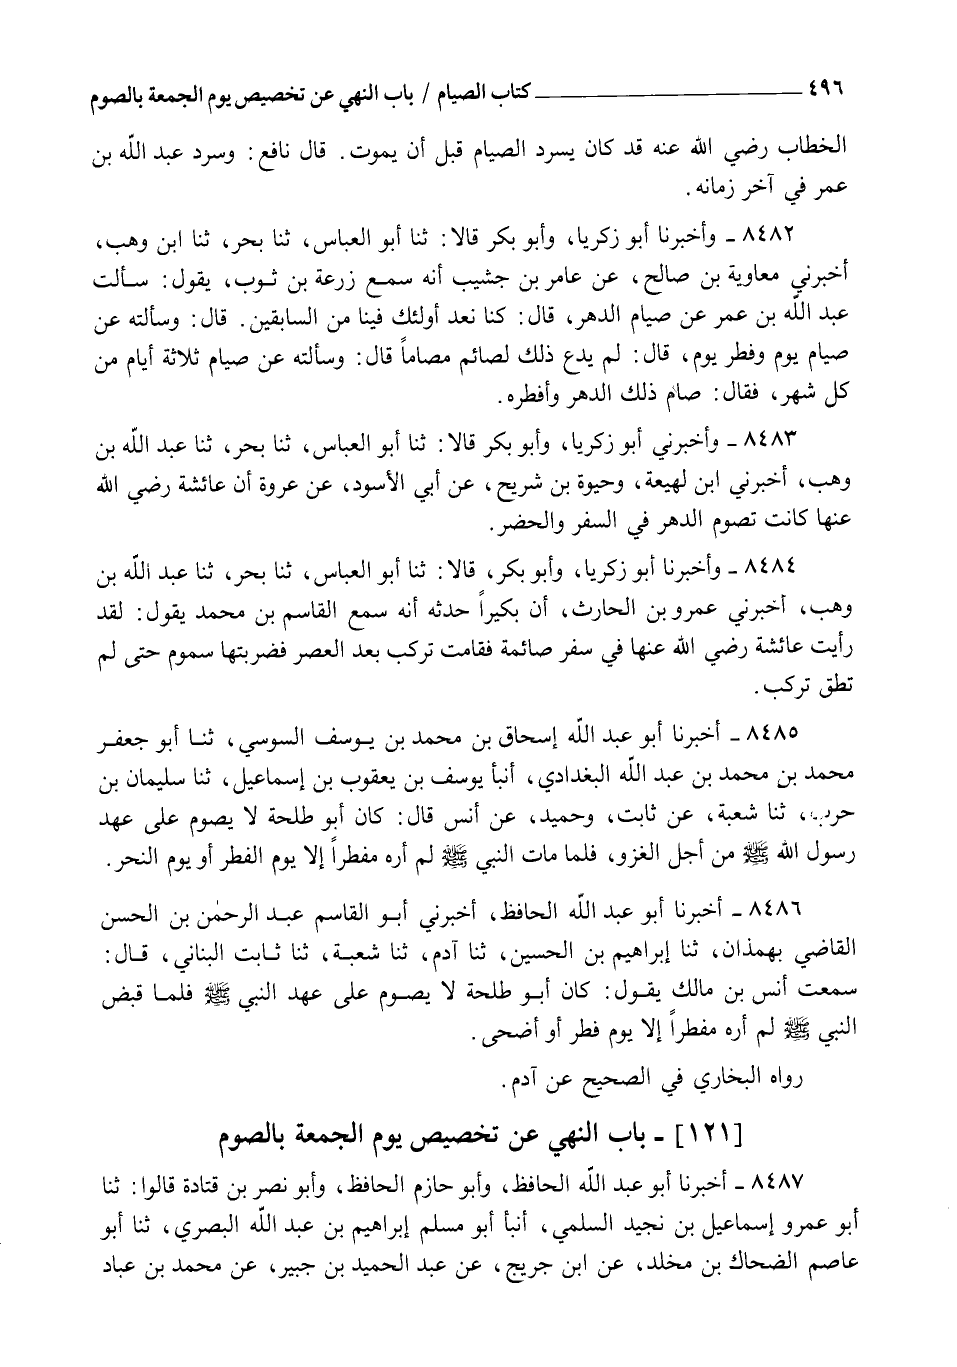 ٤٩٦ ـــــــــــــ كتاب الصيام / باب النهي عن تخصيص يوم الجمعة بالصوم
الخطاب رضي الله عنه قد كان يسرد الصيام قبل أن يموت. قال نافع: وسرد عبد اللّه بن
عمر في آخر زمانه.
٨٤٨٢ ـ وأخبرنا أبو زكريا، وأبو بكر قالا: ثنا أبو العباس، ثنا بحر، ثنا ابن وهب،
أخبرني معاوية بن صالح، عن عامر بن جشيب أنه سمـع زرعة بن ثـوب، يقول: سـألت
عبد اللّه بن عمر عن صيام الدهر، قال: كنا نعد أولئك فينا من السابقين. قال: وسألته عن
صيام يوم وفطر يوم، قال: لم يدع ذلك لصائم مصاماً قال: وسألته عن صيام ثلاثة أيام من
كل شهر، فقال: صام ذلك الدهر وأفطره.
٨٤٨٣ ـ وأخبرني أبو زكريا، وأبو بكر قالا: ثنا أبو العباس، ثنا بحر، ثنا عبد اللّه بن
وهب، أخبرني ابن لهيعة، وحيوة بن شريح، عن أبي الأسود، عن عروة أن عائشة رضي الله
عنها كانت تصوم الدهر في السفر والحضر.
٨٤٨٤ ـ وأخبرنا أبو زكريا، وأبو بكر، قالا: ثنا أبو العباس، ثنا بحر، ثنا عبد اللّه بن
وهب، أخبرني عمرو بن الحارث، أن بكيراً حدثه أنه سمع القاسم بن محمد يقول: لقد
رأيت عائشة رضي الله عنها في سفر صائمة فقامت تركب بعد العصر فضربتها سموم حتى لم
تطق تركب.
٨٤٨٥ ـ أخبرنا أبو عبد اللّه إسحاق بن محمد بن يـوسف السوسي، ثنـا أبو جعفـر
محمد بن محمد بن عبد اللّه البغدادي، أنبأ يوسف بن يعقوب بن إسماعيل، ثنا سليمان بن
حرب، ثنا شعبة، عن ثابت، وحميد، عن أنس قال: كان أبو طلحة لا يصوم على عهد
رسول الله ﷺ من أجل الغزو، فلما مات النبي ﷺ لم أره مفطراً إلا يوم الفطر أو يوم النحر.
٨٤٨٦ ـ أخبرنا أبو عبد اللّه الحافظ، أخبرني أبـو القاسم عبـد الرحمٰن بن الحسن
القاضي بهمذان، ثنا إبراهيم بن الحسين، ثنا آدم، ثنا شعبـة، ثنا ثـابت البناني، قـال:
سمعت أنس بن مالك يقـول: كان أبـو طلحة لا يصـوم على عهد النبي ﷺ فلمـا قبض
النبي ﷺ لم أره مفطراً إلا يوم فطر أو أضحى.
رواه البخاري في الصحيح عن آدم.
[١٢١] ـ باب النهي عن تخصيص يوم الجمعة بالصوم
٨٤٨٧ ـ أخبرنا أبو عبد اللّه الحافظ، وأبو حازم الحافظ، وأبو نصر بن قتادة قالوا: ثنا
أبو عمرو إسماعيل بن نجيد السلمي، أنبأ أبو مسلم إبراهيم بن عبد اللّه البصري، ثنا أبو
عاصم الضحاك بن مخلد، عن ابن جريج، عن عبد الحميد بن جبير، عن محمد بن عباد